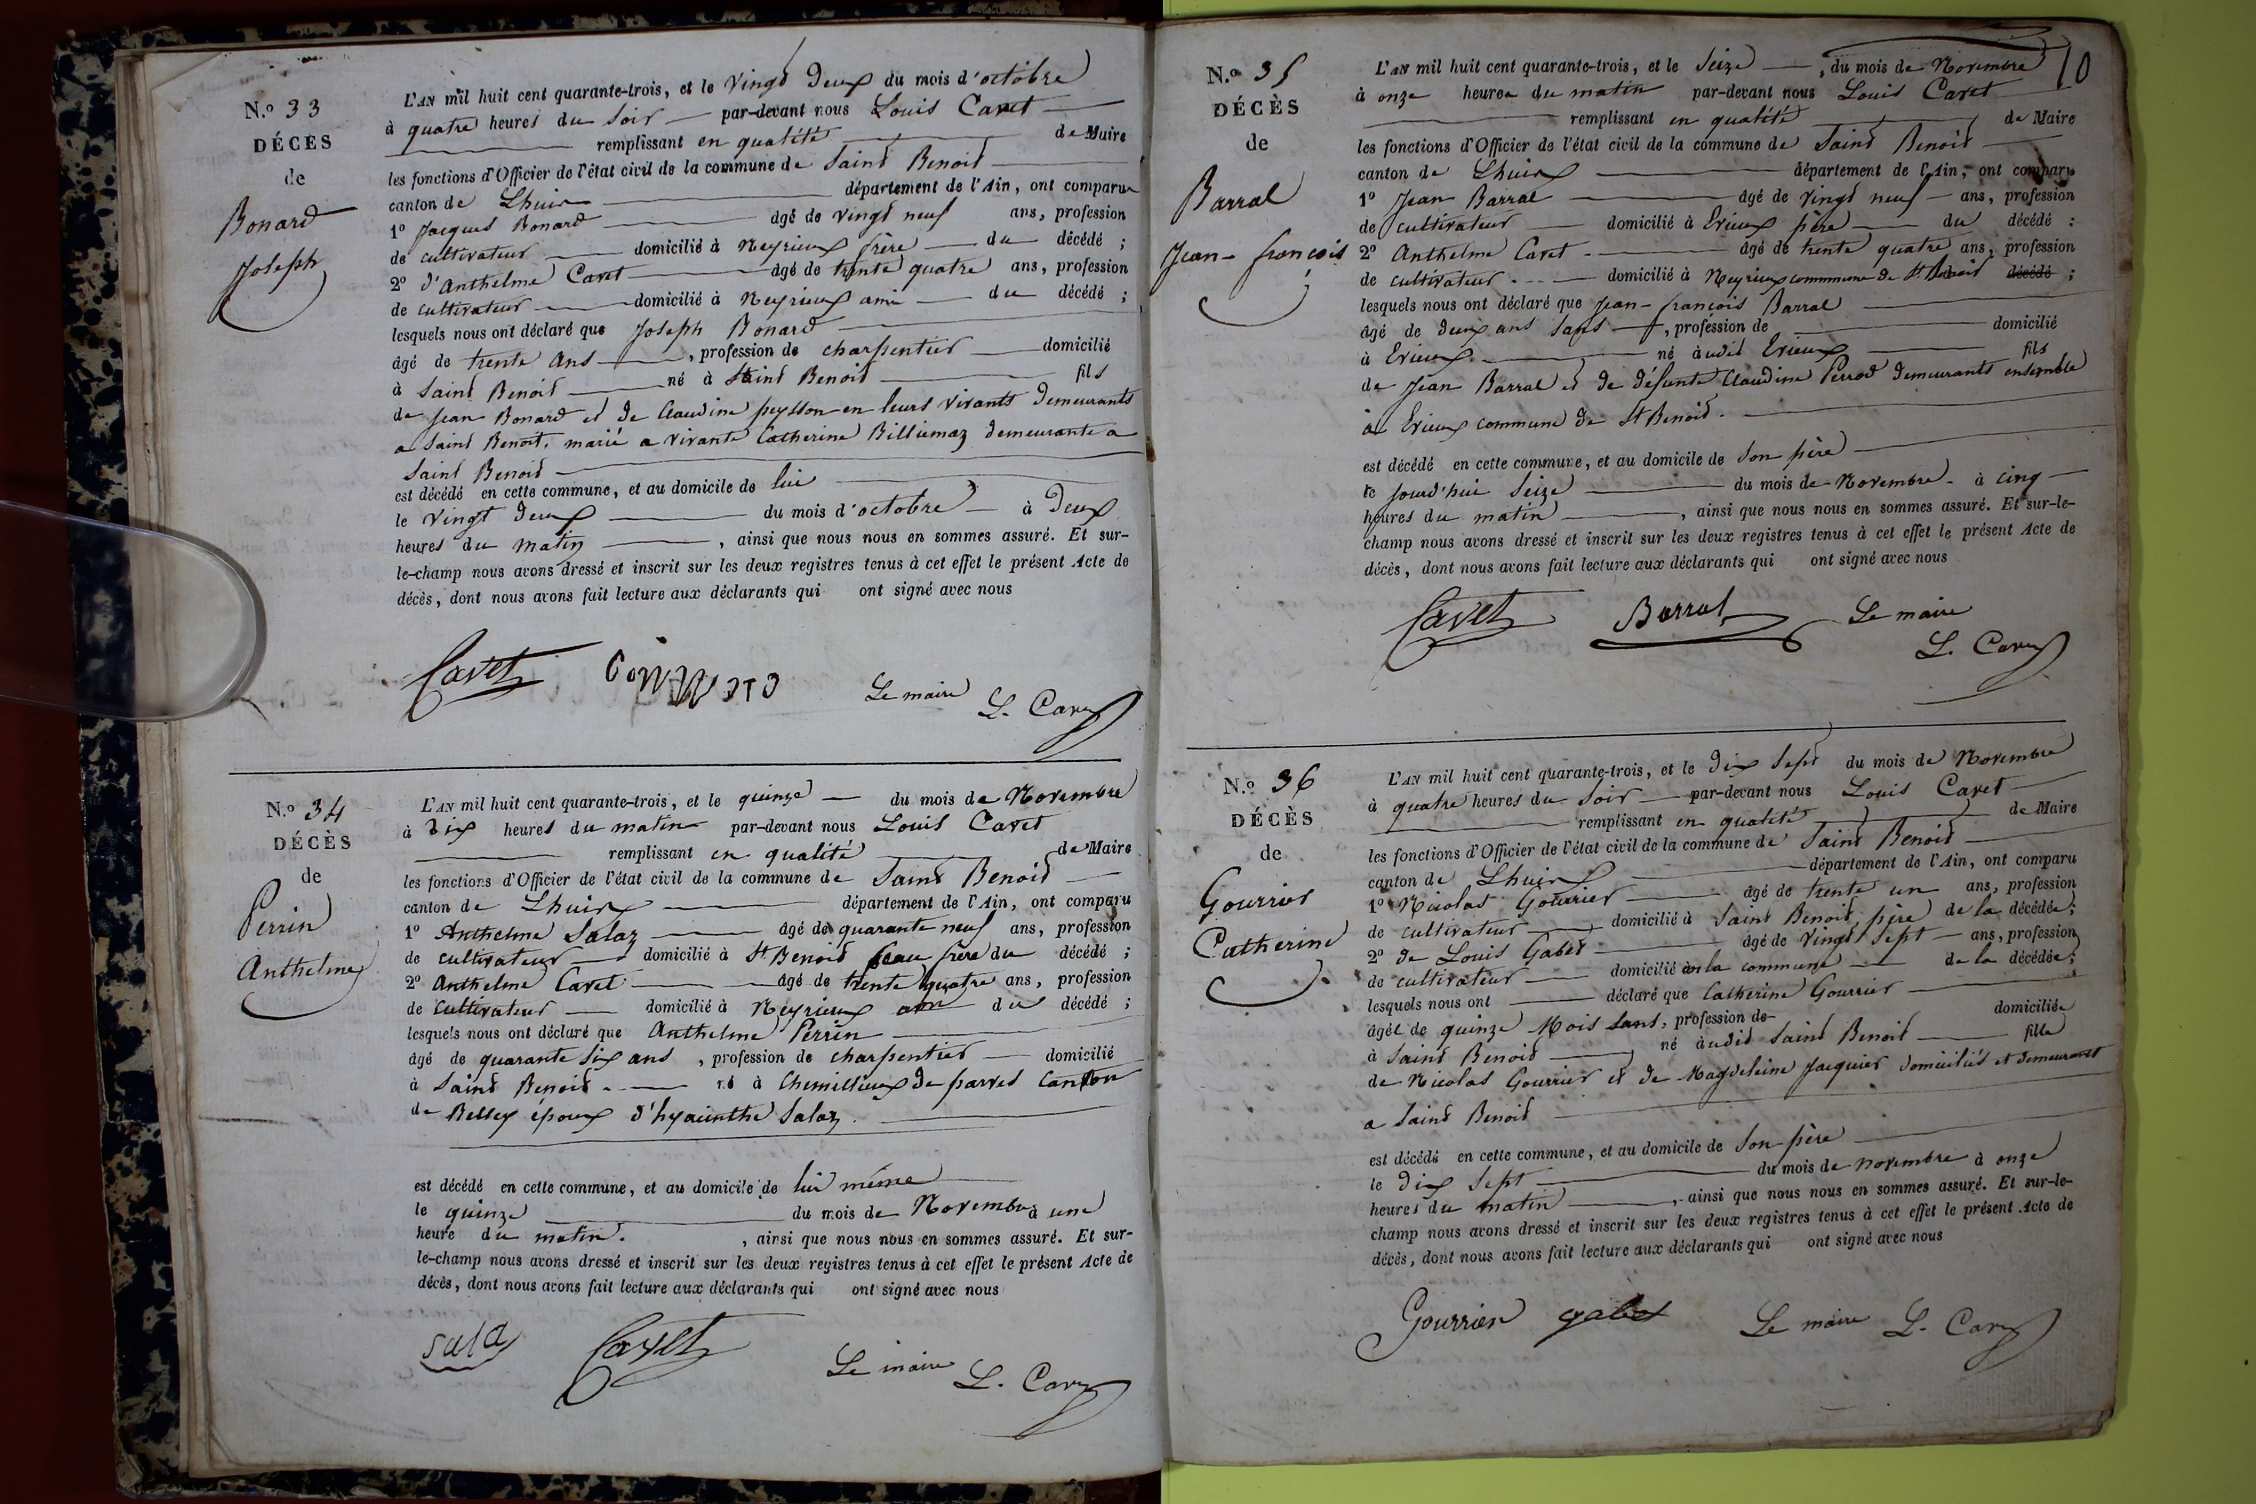 N.º 33
DÉCÈS
de
Bonard
Joseph
L'AN mil huit cent quarante-trois, et le vingt deux du mois d'octobre
à quatre heures du soir par-devant nous Louis Cavet
remplissant en qualité de Maire
les fonctions d'Officier de l'état civil de la commune de Saint Benoit
canton de Lhuis département de l'Ain, ont comparu
1º Jacques Bonard âgé de vingt neuf ans, profession
de cultivateur domicilié à Neyrieux frère du décédé ;
2º d'Anthelme Cavet âgé de trente quatre ans, profession
de cultivateur domicilié à Neyrieux ami du décédé ;
lesquels nous ont déclaré que Joseph Bonard
âgé de trente ans , profession de charpentier domicilié
à Saint Benoit né à Saint Benoit fils
de Jean Bonard et de Claudine peysson en leurs vivants demeurants
a Saint Benoit, marié a vivante Catherine Billiemaz demeurante a
Saint Benoit
est décédé en cette commune, et au domicile de lui
le vingt deux du mois d'octobre à deux
heures du matin , ainsi que nous nous en sommes assuré. Et sur-
le-champ nous avons dressé et inscrit sur les deux registres tenus à cet effet le présent Acte de
décès, dont nous avons fait lecture aux déclarants qui ont signé avec nous
Cavet Le maire L. Cavet
N.º 34
DÉCÈS
de
Perrin
Anthelme
L'AN mil huit cent quarante-trois, et le quinze du mois de Novembre
à dix heures du matin par-devant nous Louis Cavet
remplissant en qualité de Maire
les fonctions d'Officier de l'état civil de la commune de Saint Benoit
canton de Lhuis département de l'Ain, ont comparu
1º Anthelme Salaz âgé de quarante neuf ans, profession
de cultivateur domicilié à St Benoit beau frère du décédé ;
2º Anthelme Cavet âgé de trente quatre ans, profession
de cultivateur domicilié à Neyrieux ami du décédé ;
lesquels nous ont déclaré que Anthelme Perrin
âgé de quarante six ans , profession de charpentier domicilié
à Saint Benoit né à Chemillieux de parves Canton
de Belley époux d'hyacinthe Salaz
est décédé en cette commune, et au domicile de lui même
le quinze du mois de Novembre à une
heure du matin. , ainsi que nous nous en sommes assuré. Et sur-
le-champ nous avons dressé et inscrit sur les deux registres tenus à cet effet le présent Acte de
décès, dont nous avons fait lecture aux déclarants qui ont signé avec nous
sala Cavet Le maire L. Cavet
10
N.º 35
DÉCÈS
de
Barral
Jean-françois
L'AN mil huit cent quarante-trois, et le Seize , du mois de Novembre
à onze heures du matin par-devant nous Louis Cavet
remplissant en qualité de Maire
les fonctions d'Officier de l'état civil de la commune de Saint Benoit
canton de Lhuis département de l'Ain, ont comparu
1º Jean Barral âgé de vingt neuf ans, profession
de cultivateur domicilié à Evieux père du décédé ;
2º Anthelme Cavet âgé de trente quatre ans, profession
de cultivateur domicilié à Neyrieux commune de St Benoit décédé ;
lesquels nous ont déclaré que Jean-françois Barral
âgé de deux ans sans , profession de domicilié
à Evieux né audit Evieux fils
de Jean Barral et de défunte Claudine Perrod demeurants ensemble
à Evieux commune de St Benoit.
est décédé en cette commune, et au domicile de son père
le jourd'hui Seize du mois de Novembre à cinq
heures du matin , ainsi que nous nous en sommes assuré. Et sur-le-
champ nous avons dressé et inscrit sur les deux registres tenus à cet effet le présent Acte de
décès, dont nous avons fait lecture aux déclarants qui ont signé avec nous
Cavet Barral Le maire L. Cavet
N.º 36
DÉCÈS
de
Gourrier
Catherine
L'AN mil huit cent quarante-trois, et le dix sept du mois de Novembre
à quatre heures du soir par-devant nous Louis Cavet
remplissant en qualité de Maire
les fonctions d'Officier de l'état civil de la commune de Saint Benoit
canton de Lhuis département de l'Ain, ont comparu
1º Nicolas Gourrier âgé de trente un ans, profession
de cultivateur domicilié à Saint Benoit père de la décédée ;
2º de Louis Gabet âgé de vingt sept ans, profession
de cultivateur domicilié en la commune de la décédée ;
lesquels nous ont déclaré que Catherine Gourrier
âgée de quinze Mois sans, profession de domiciliée
à Saint Benoit né audit Saint Benoit fille
de Nicolas Gourrier et de Magdeleine Jacquier domiciliés et demeurant
a Saint Benoit
est décédé en cette commune, et au domicile de son père
le dix sept du mois de novembre à onze
heures du matin , ainsi que nous nous en sommes assuré. Et sur-le-
champ nous avons dressé et inscrit sur les deux registres tenus à cet effet le présent Acte de
décès, dont nous avons fait lecture aux déclarants qui ont signé avec nous
Gourrier gabet Le maire L. Cavet